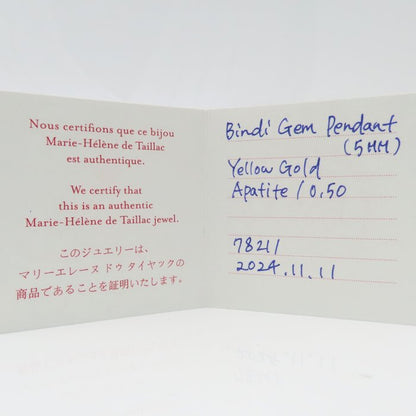 Nous certifions que ce bijou
Marie-Hélène de Taillac
est authentique.
We certify that
this is an authentic
Marie-Hélène de Taillac jewel.
このジュエリーは、
マリーエレーヌ ドゥ タイヤックの
商品であることを証明いたします。
Bindi Gem Pendant
(5MM)
Yellow Gold
Apatite / 0.50
78211
2024.11.11